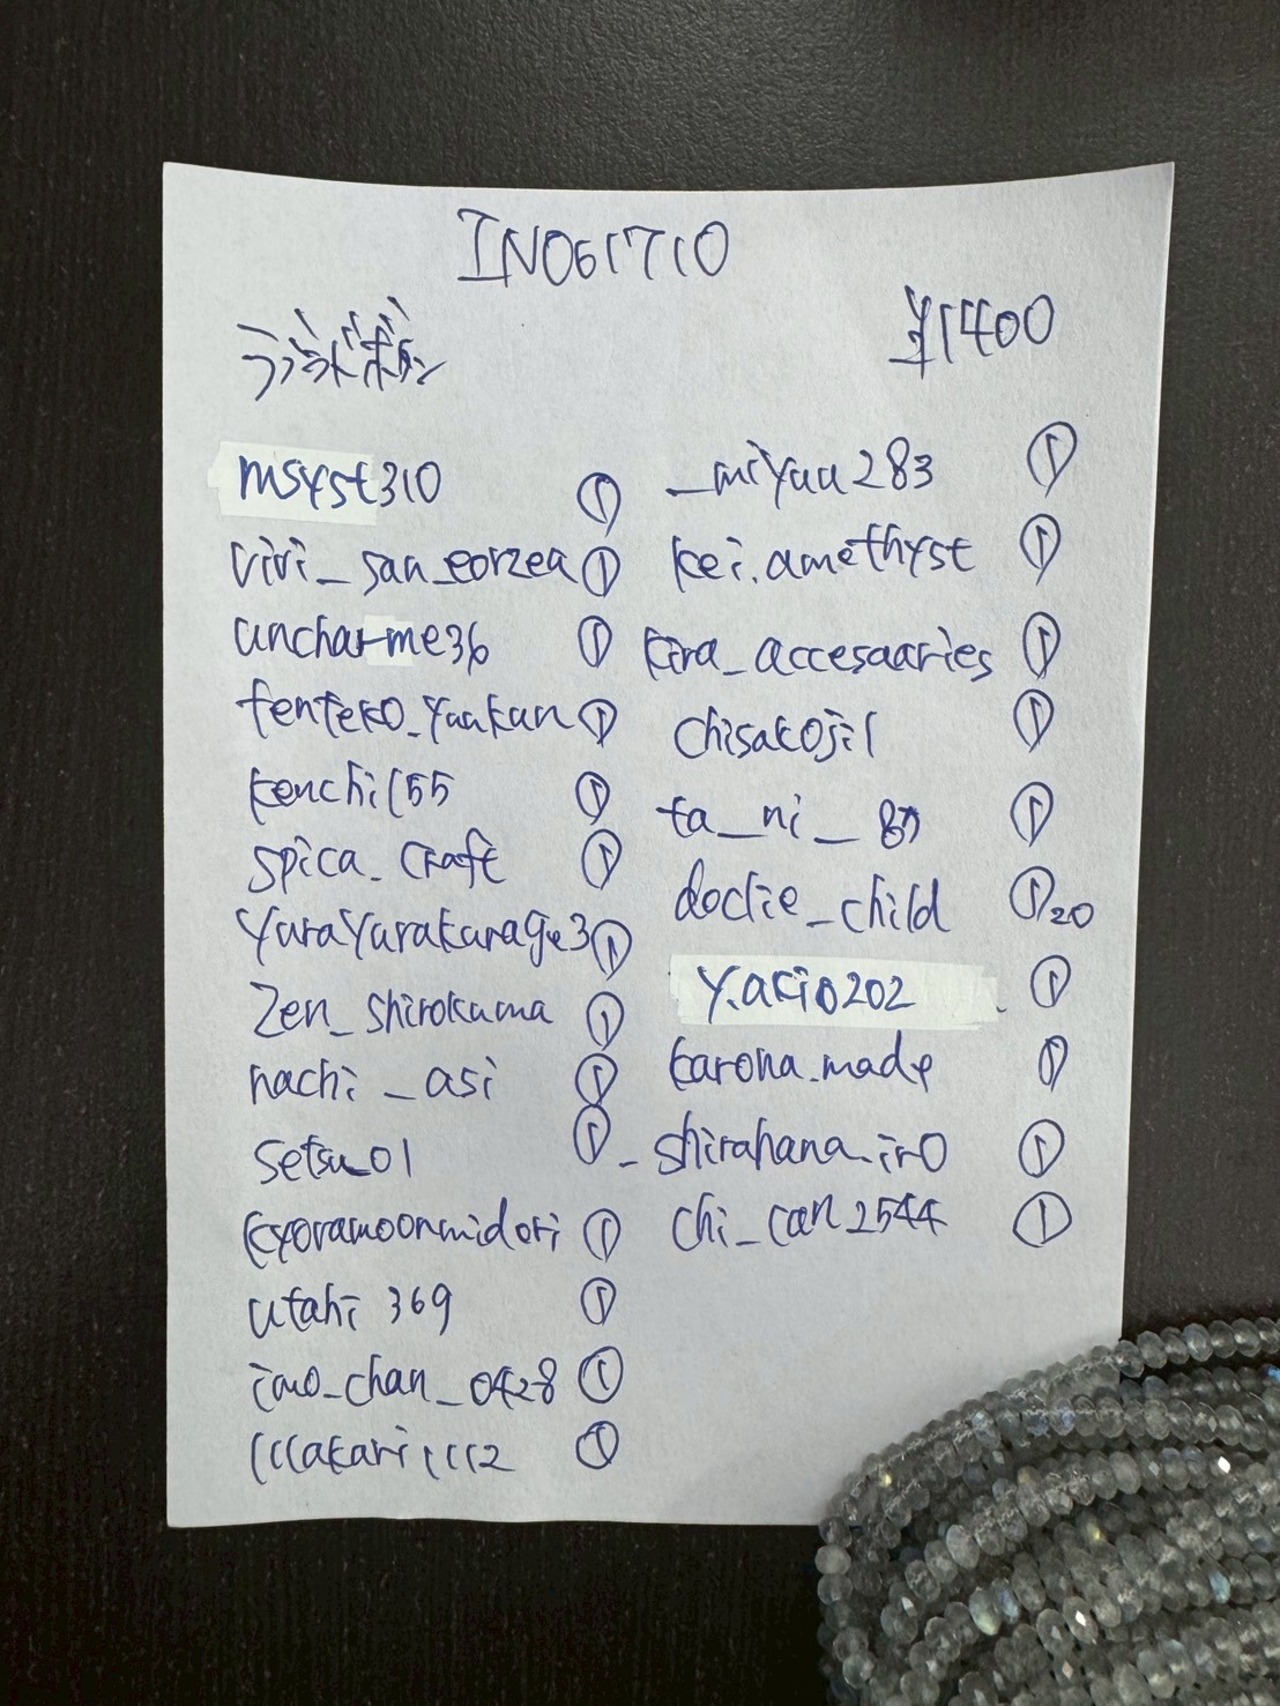 IN061710
ラブラドボタン
¥1400
msyst310 ①
vivi_san_eorzea ①
uncharme36 ①
tenteko_yuukun ①
kenchi155 ①
spica_craft ①
yurayurakarage3 ①
zen_shirokuma ①
nachi_asi ①
setsu_01 ①
kyoramoonmidori ①
utahi369 ①
imo_chan_0428 ①
111akari1112 ①
_miyuu283 ①
kei.amethyst ①
kira_accesaaries ①
chisakoji1 ①
ta_ni_87 ①
doclie_child ①20
y.aki0202 ①
karona.made ①
_shirahana.ir0 ①
chi_can2544 ①